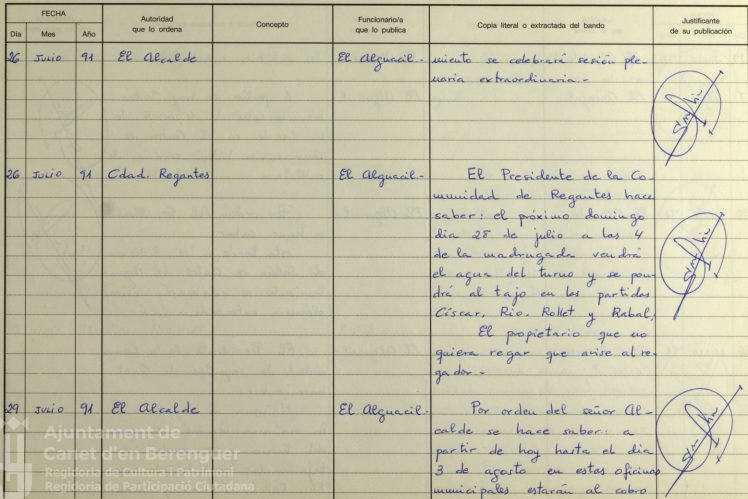 FECHA
Día Mes Año
Autoridad
que lo ordena
Concepto
Funcionario/a
que lo publica
Copia literal o extractada del bando
Justificante
de su publicación
26 Julio 91 El Alcalde El Alguacil.- miento se celebrará sesión ple-
naria extraordinaria.-
26 Julio 91 Cdad. Regantes El Alguacil.- El Presidente de la Co-
munidad de Regantes hace
saber: el próximo domingo
dia 28 de julio a las 4
de la madrugada vendrá
el agua del turno y se pon-
drá al tajo en las partidas
Císcar, Rio, Rollet y Rabal.
El propietario que no
quiera regar que avise al re-
gador.-
29 Julio 91 El Alcalde El Alguacil.- Por orden del señor Al-
calde se hace saber: a
partir de hoy hasta el dia
3 de agosto en estas oficinas
municipales estarán al cobro
Ajuntament de
Canet d'en Berenguer
Regidoria de Cultura i Patrimoni
Regidoria de Participació Ciutadana